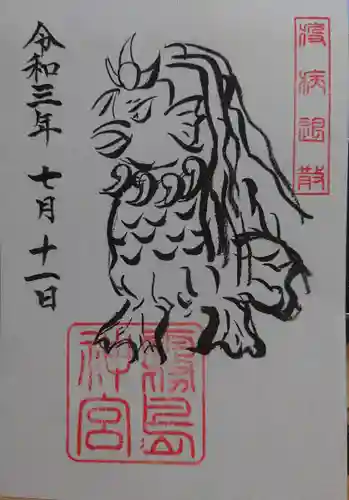 疫病退散
令和三年 七月十一日
霧島
神宮